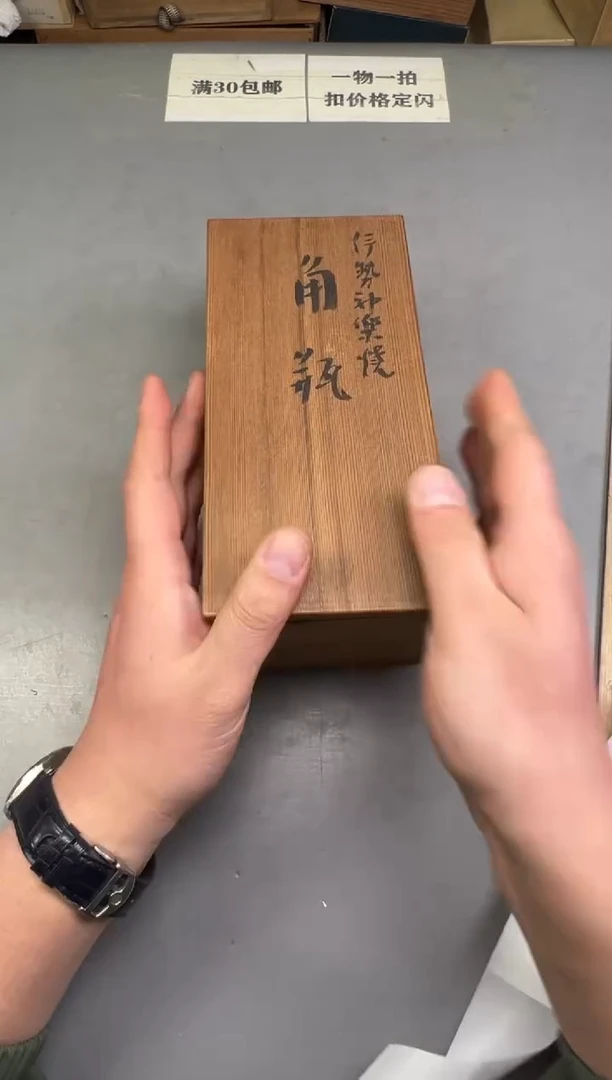 满30包邮
一物一拍
扣价格定闪
伊勢神楽焼
角瓶